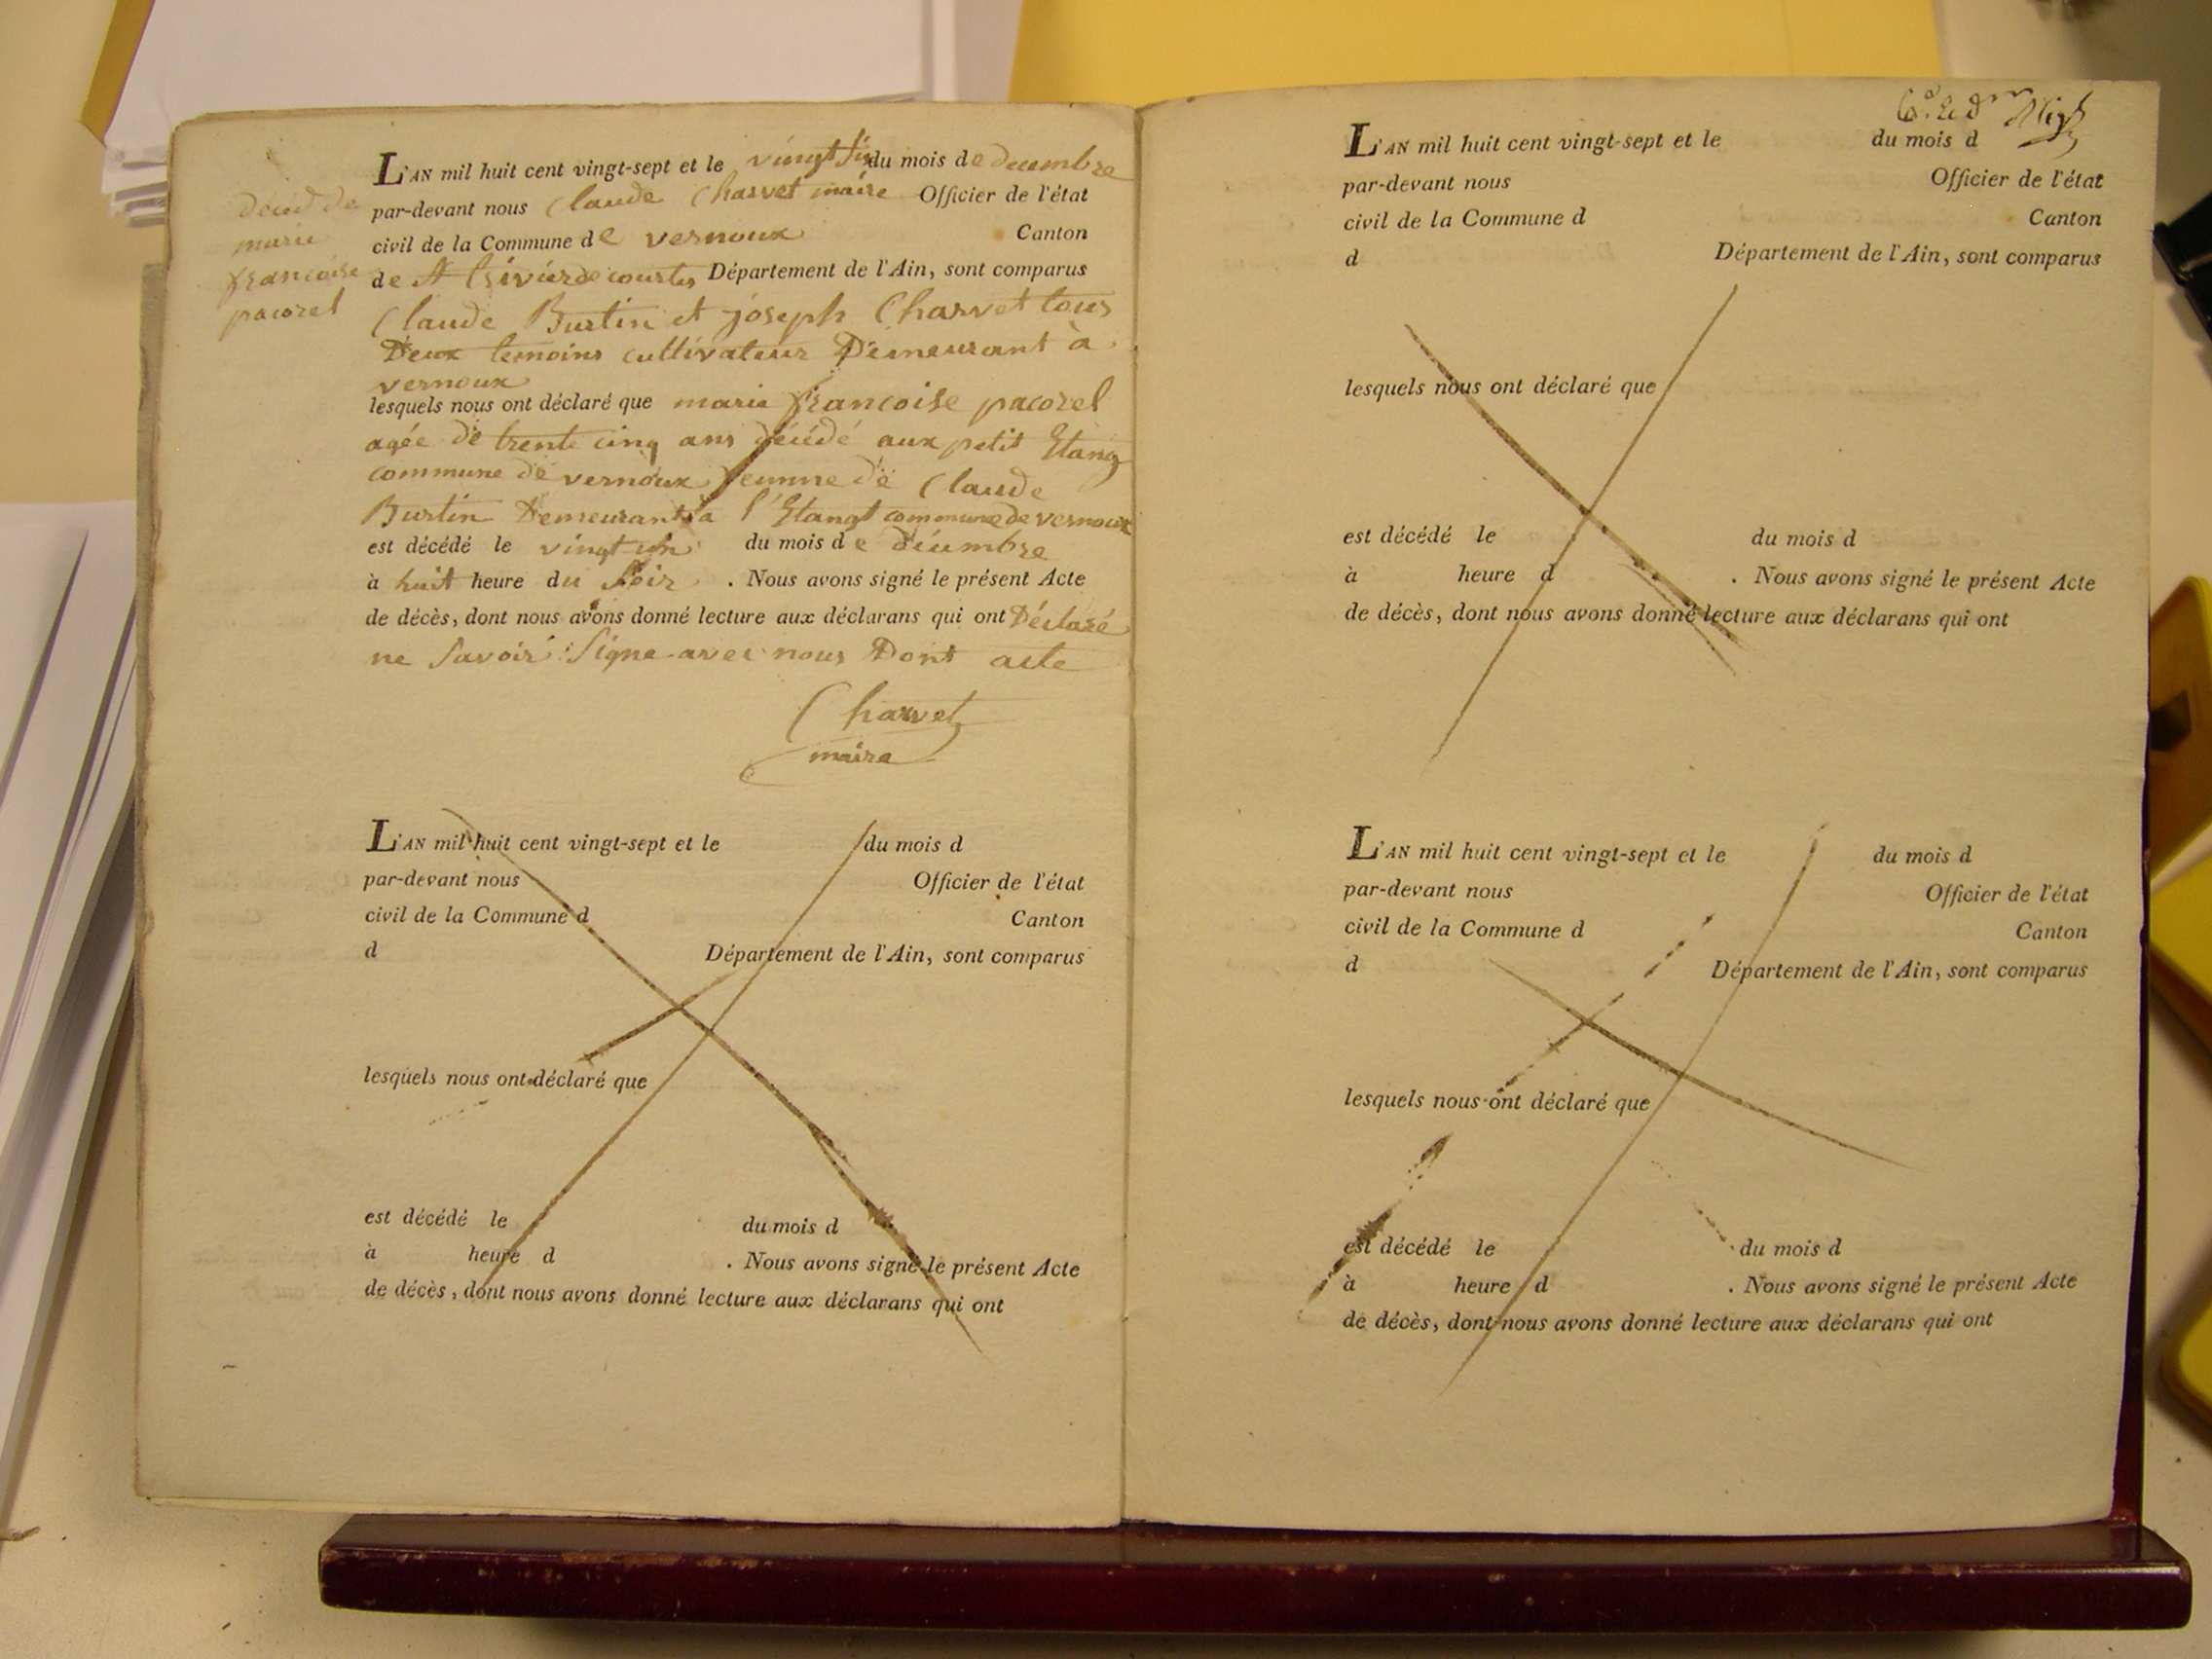 deced de
marie
francoise
pacorel
L'AN mil huit cent vingt-sept et le vingt six du mois de decembre
par-devant nous Claude Charvet maire Officier de l'état
civil de la Commune de vernoux Canton
de St trivier de courtes Département de l'Ain, sont comparus
Claude Burtin et joseph Charvet tous
Deux temoins cultivateur Demeurant à
vernoux
lesquels nous ont déclaré que marie francoise pacorel
agée de trente cinq ans décédé aux petit Etang
commune de vernoux femme de Claude
Burtin Demeurant a l'Etangt commune de vernoux
est décédé le vingt un du mois de décembre
à huit heure du Soir . Nous avons signé le présent Acte
de décès, dont nous avons donné lecture aux déclarans qui ont Déclaré
ne Savoir Signe avec nous Dont acte
Charvet
maire
L'AN mil huit cent vingt-sept et le du mois d
par-devant nous Officier de l'état
civil de la Commune d Canton
d Département de l'Ain, sont comparus
lesquels nous ont déclaré que
est décédé le du mois d
à heure d . Nous avons signé le présent Acte
de décès, dont nous avons donné lecture aux déclarans qui ont
L'AN mil huit cent vingt-sept et le du mois d
par-devant nous Officier de l'état
civil de la Commune d Canton
d Département de l'Ain, sont comparus
lesquels nous ont déclaré que
est décédé le du mois d
à heure d . Nous avons signé le présent Acte
de décès, dont nous avons donné lecture aux déclarans qui ont
L'AN mil huit cent vingt-sept et le du mois d
par-devant nous Officier de l'état
civil de la Commune d Canton
d Département de l'Ain, sont comparus
lesquels nous ont déclaré que
est décédé le du mois d
à heure d . Nous avons signé le présent Acte
de décès, dont nous avons donné lecture aux déclarans qui ont